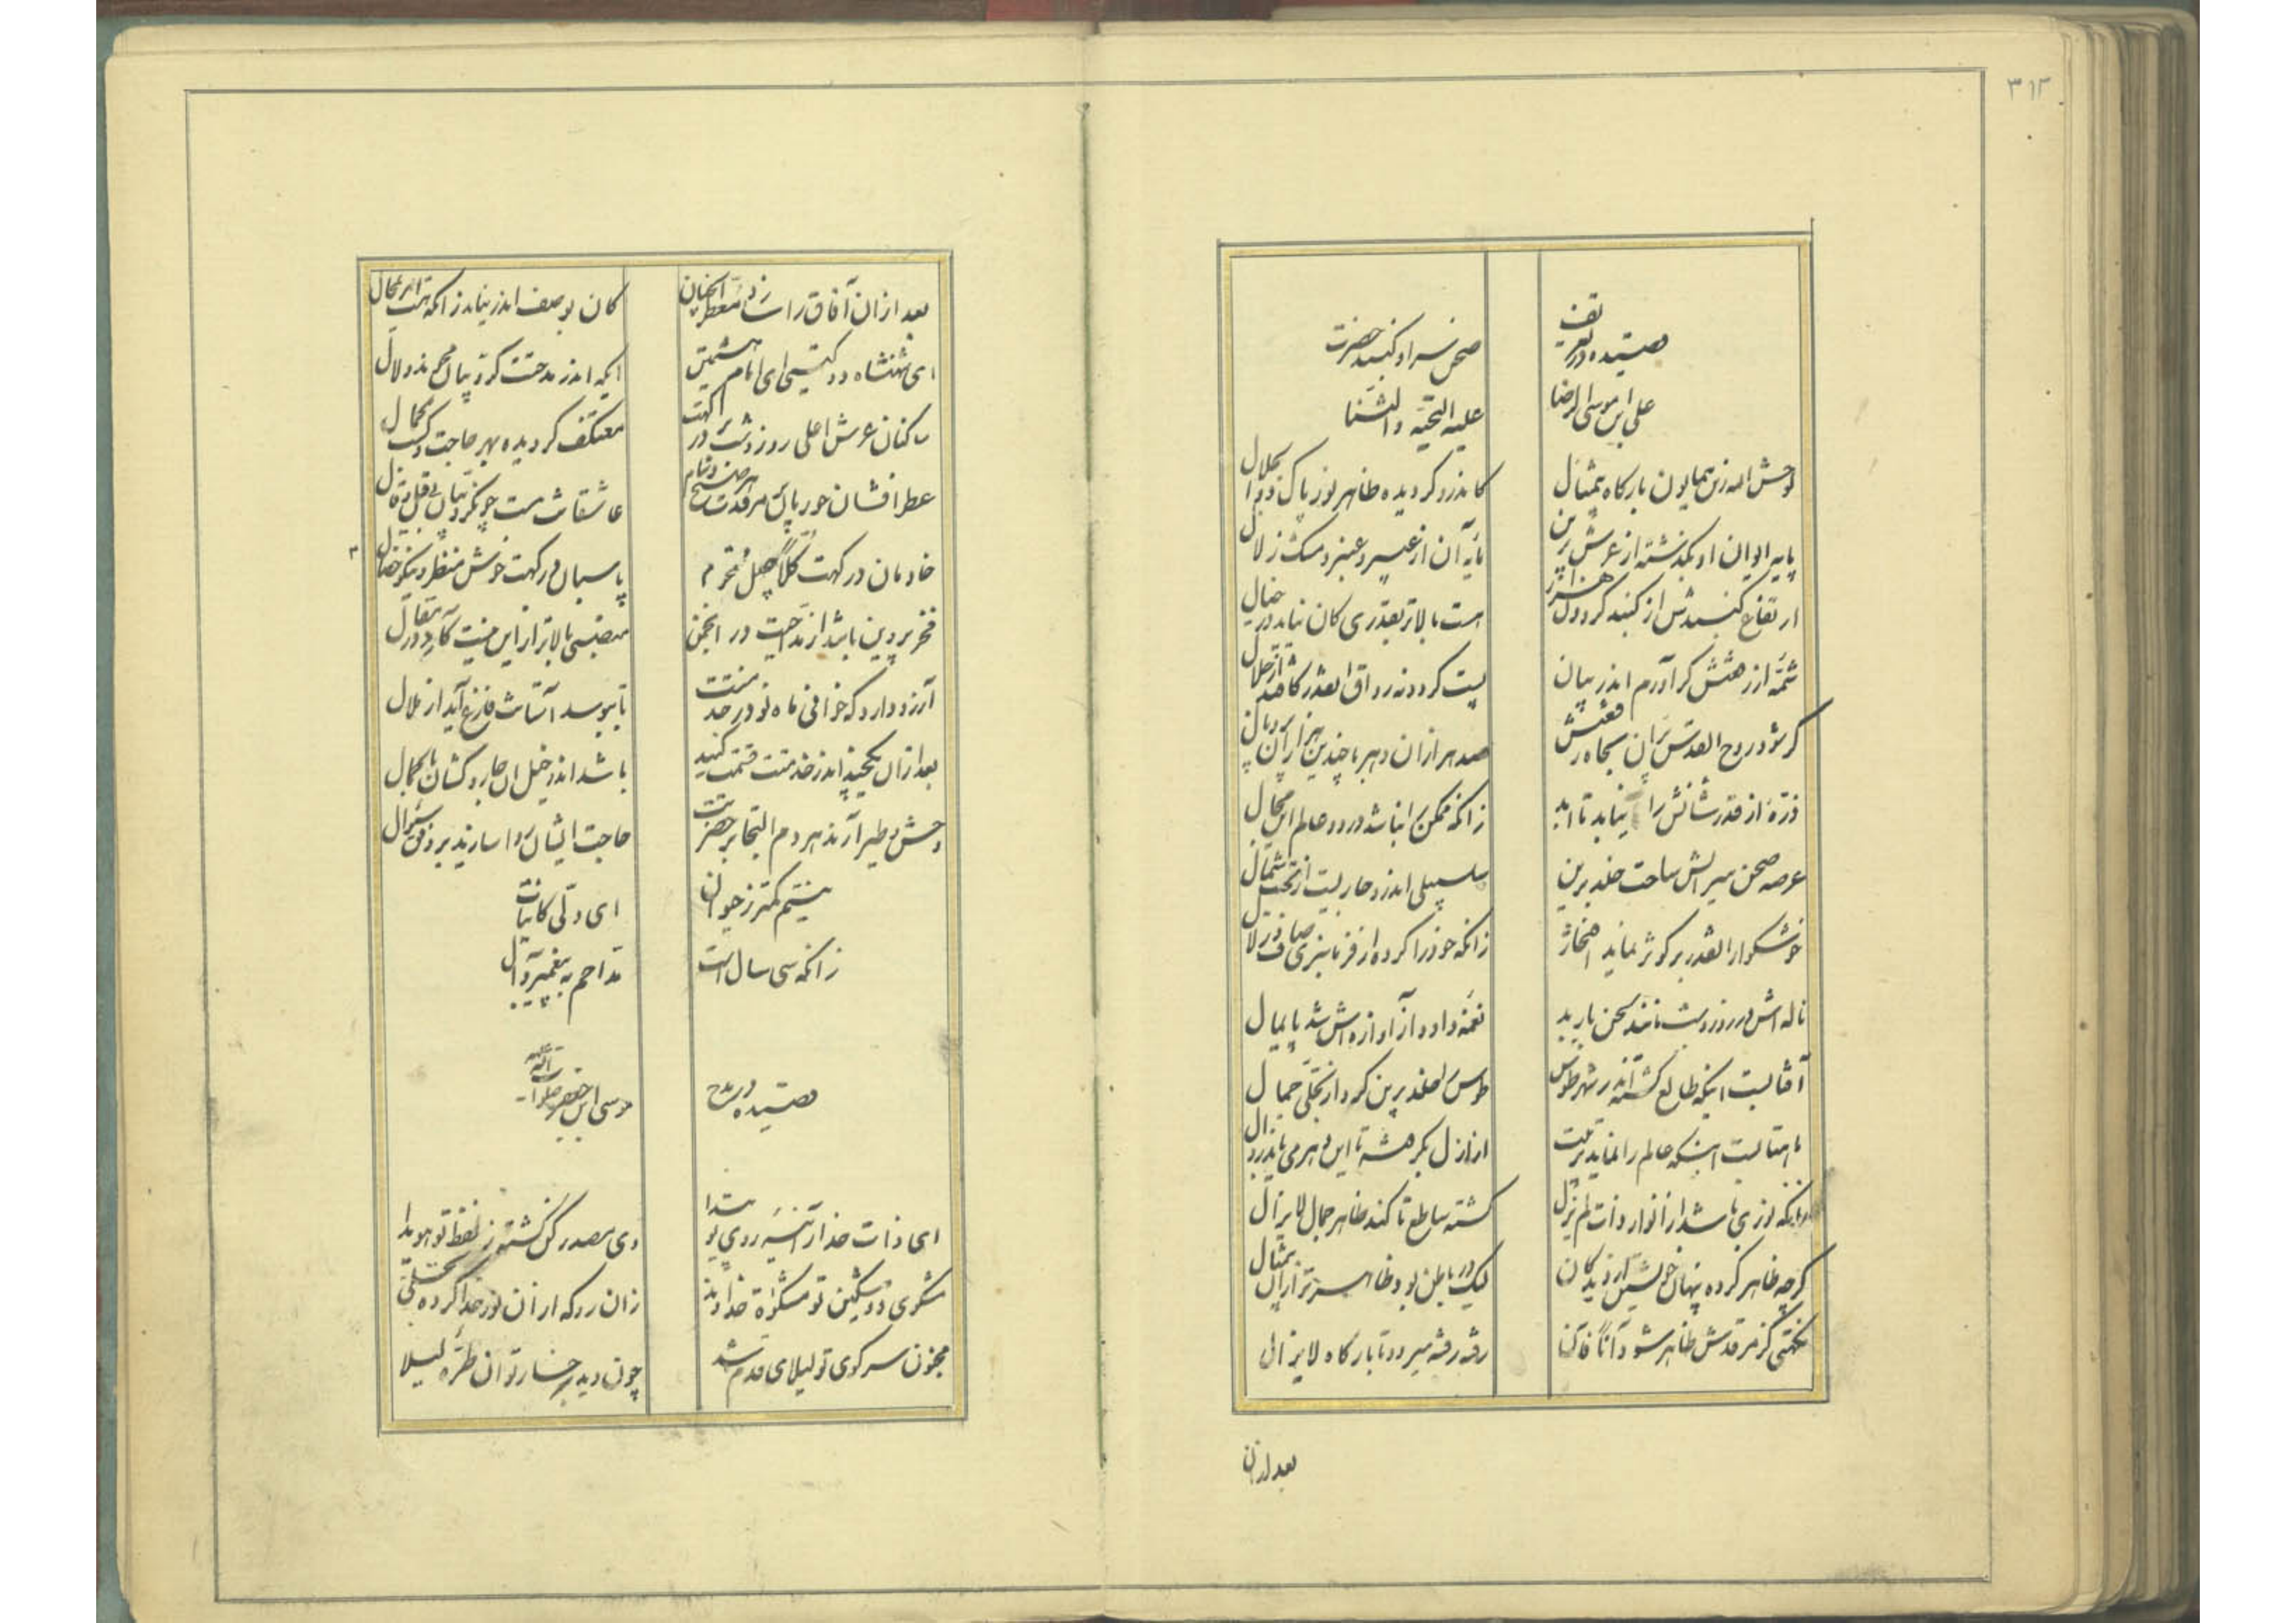 ۳۱۲
قصیده در تعریف
صحن سرا و کنبد حضرت
علی ابن موسی الرضا
علیه التحیة والثنا
لوحش الله زین همایون بارکاه بیمثال
کاندرو کردیده ظاهر نور پاک ذوالجلال
پایه ایوان او بکذشته از عرش برین
آن از عبیر و عنبر و مشک زلال
ارتفاع کنبدش از کنبد کردون
هست بالاتر بقدری کان نیاید در خیال
شمه از رفعتش کر آورم اندر بیان
پست کردد نه رواق
کر شود روح القدس پران بجاه رفعتش
صد هزاران دهر با چندین هزاران
ذره از قدر شانش را نیابد تا ابد
زانکه ممکن نباشد در دو عالم این محال
عرصه صحن سرایش ساحت خلد برین
سلسبیلی اندرو جاریست از تحت شمال
خوشکوار القدر بر کوثر نماید افتخار
زانکه خود را کرده از
ناله اش در روز و شب مانند لحن باربد
نغمه داود از آوازه اش شد پایمال
آفتابیست اینکه طالع کشته اندر شهر طوس
طوس را خلد برین کرد از تجلی جمال
ماهتابیست اینکه عالم را نماید تربیت
از ازل بکرفته تا این دهر می یابد زوال
نور می باشد از انوار ذات لم یزل
کشته ساطع تا کند ظاهر جمال لایزال
کرچه ظاهر کرده پنهان خویش از دیدکان
لیک در باطن بود ظاهر
نکهتی کز مرقدش ظاهر شود آنا فآنا
رفته رفته میرود تا بارکاه لایزال
بعد از ان
بعد از ان آفاق را سازد معطر آنچنان
کان بوصف اندر نیاید زانکه هست امر محال
ای شهنشاه دو کیتی ای امام هشتمین
ایکه اندر مدحتت کردد بیان
ساکنان عرش اعلی روز و شب بر درکهت
معتکف کردیده بهر حاجت و کسب کمال
عطر افشان حور پای مرقدت هر صبح و شام
خادمان درکهت کلا جمیل محترم
پاسبان درکهت خوش منظر و نیکو خصال
فخر بر دین باشد از مداحیت در انجمن
منصبی بالاتر از این نیست کآید در مقال
آرزو دارد که خوافی ماه نو در خدمتت
تا ببوسد آستانت فارغ آید از ملال
بعد از ان اندر خدمتت قسمت کنید
باشد اندر خیل ان جاروکشان
وحش و طیر آرند هر دم التجا بر حضرتت
حاجت ایشان روا سازند بر وفق سئوال
نیستم کمتر ز حیوان
ای ولی کاینات
زانکه سی سال است
مداحم به پیغمبر و آل
قصیده در مدح
موسی ابن جعفر صلوات الله
ای ذات خدا از آئینه روی تو پیدا
وی مصدر کن کشته ز لفظ تو هویدا
مشکوی تو مشکوة خداوند
زان رو که از آن نور خدا کرده تجلی
مجنون سر کوی تو لیلای قدم شد
چون دید برخسار تو ان طره لیلا